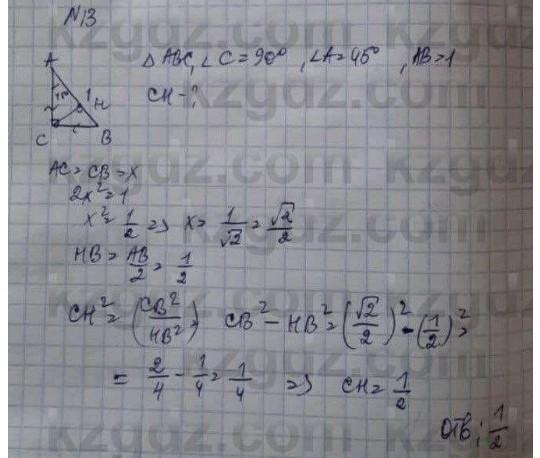 N13
△ABC, ∠C=90°, ∠A=45°, AB=1
CH-?
A
1
H
C
B
AC=CB=x
2x²=1
x²=1/2 => x=1/√2=√2/2
HB=AB/2=1/2
CH²=(CB²/HB²) CB²-HB²=(√2/2)²-(1/2)²=
=2/4-1/4=1/4 => CH=1/2
Отв; 1/2
kzgdz.com